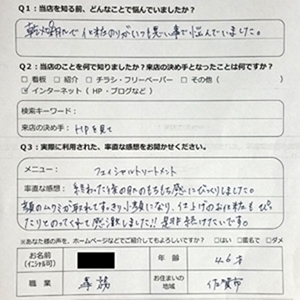 Q1：当店を知る前、どんなことで悩んでいましたか？
乾燥肌で化粧のりがいつも悪い事で悩んでいました。
Q2：当店のことを何で知りましたか？来店の決め手となったことは何ですか？
□ 看板 □ 紹介 □ チラシ・フリーペーパー □ その他（ ）
☑ インターネット（HP・ブログなど）
検索キーワード：
来店の決め手： HPを見て
Q3：実際に利用された、率直な感想をお聞かせください。
メニュー： フェイシャルトリートメント
率直な感想： 終わった後の肌のもちもち感にびっくりしました。
顔のムクミが取れてすっきり小顔になり、仕上げのお化粧もぴ
たりとのってくれて感激しました!! 是非続けたいです。
※あなた様の声を、ホームページなどでご紹介してもよろしいですか？ □はい □匿名で □ダメ
お名前
（イニシャル可）
年齢
46才
職業
事務
お住まいの
地域
佐賀市